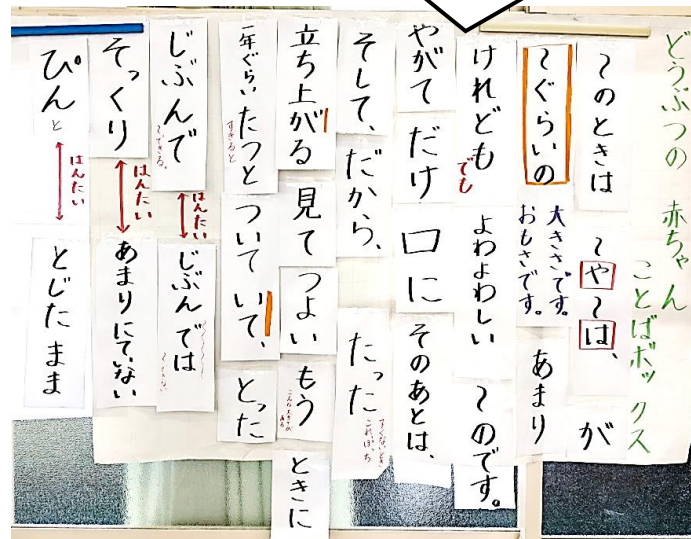 どうぶつの 赤ちゃん
ことばボックス
～のときは
～や～は、
が
～ぐらいの
大きさです。
おもさです。
あまり
けれども
でも
よわよわしい
～のです。
やがて
だけ
口に
そのあとは、
そして、
だから、
たった
すくないとき
これぽっち
立ち上がる
見て
つよい
もう
ときに
一年ぐらい
すぎると
たつと
ついていて、
とった
じぶんで
～できる。
はんたい
じぶんでは
そっくり
はんたい
あまりにていない
ぴんと
はんたい
とじたまま